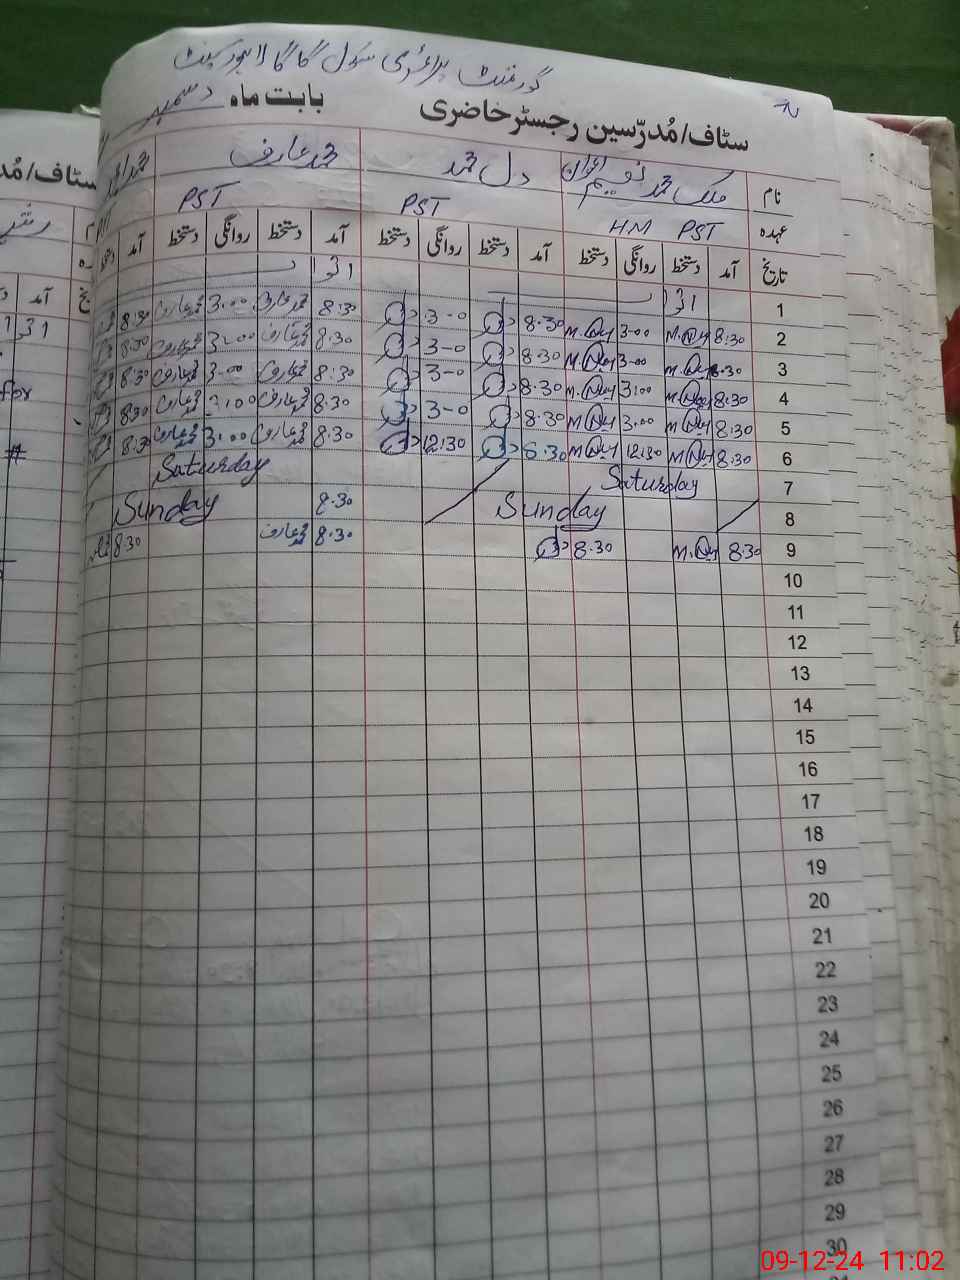 گورنمنٹ پرائمری سکول گاگا لاہور کینٹ
سٹاف/مُدرّسین رجسٹر حاضری بابت ماہ دسمبر
نام ملک محمد نعیم اعوان دل محمد محمد عارف
عہدہ HM PST PST PST
تاریخ آمد دستخط روانگی دستخط آمد دستخط روانگی دستخط آمد دستخط روانگی دستخط آمد دستخط
1 اتوار اتوار
2 8:30 3:00 8.30 3-0 8:30 محمد عارف 3:00 محمد عارف 8:30
3 8.30 3:00 8.30 3-0 8:30 محمد عارف 3:00 محمد عارف 8:30
4 8:30 3:00 8.30 3-0 8:30 محمد عارف 3:00 محمد عارف 8:30
5 8:30 3:00 8.30 3-0 8:30 محمد عارف 3:00 محمد عارف 8:30
6 8:30 12:30 8.30 12:30 8:30 محمد عارف 3:00 محمد عارف 8:30
7 Saturday Saturday
8 Sunday 8.30 Sunday
9 8:30 8.30 8.30 محمد عارف 8:30
10
11
12
13
14
15
16
17
18
19
20
21
22
23
24
25
26
27
28
29
30
سٹاف/مُد
آمد
for
#
09-12-24 11:02